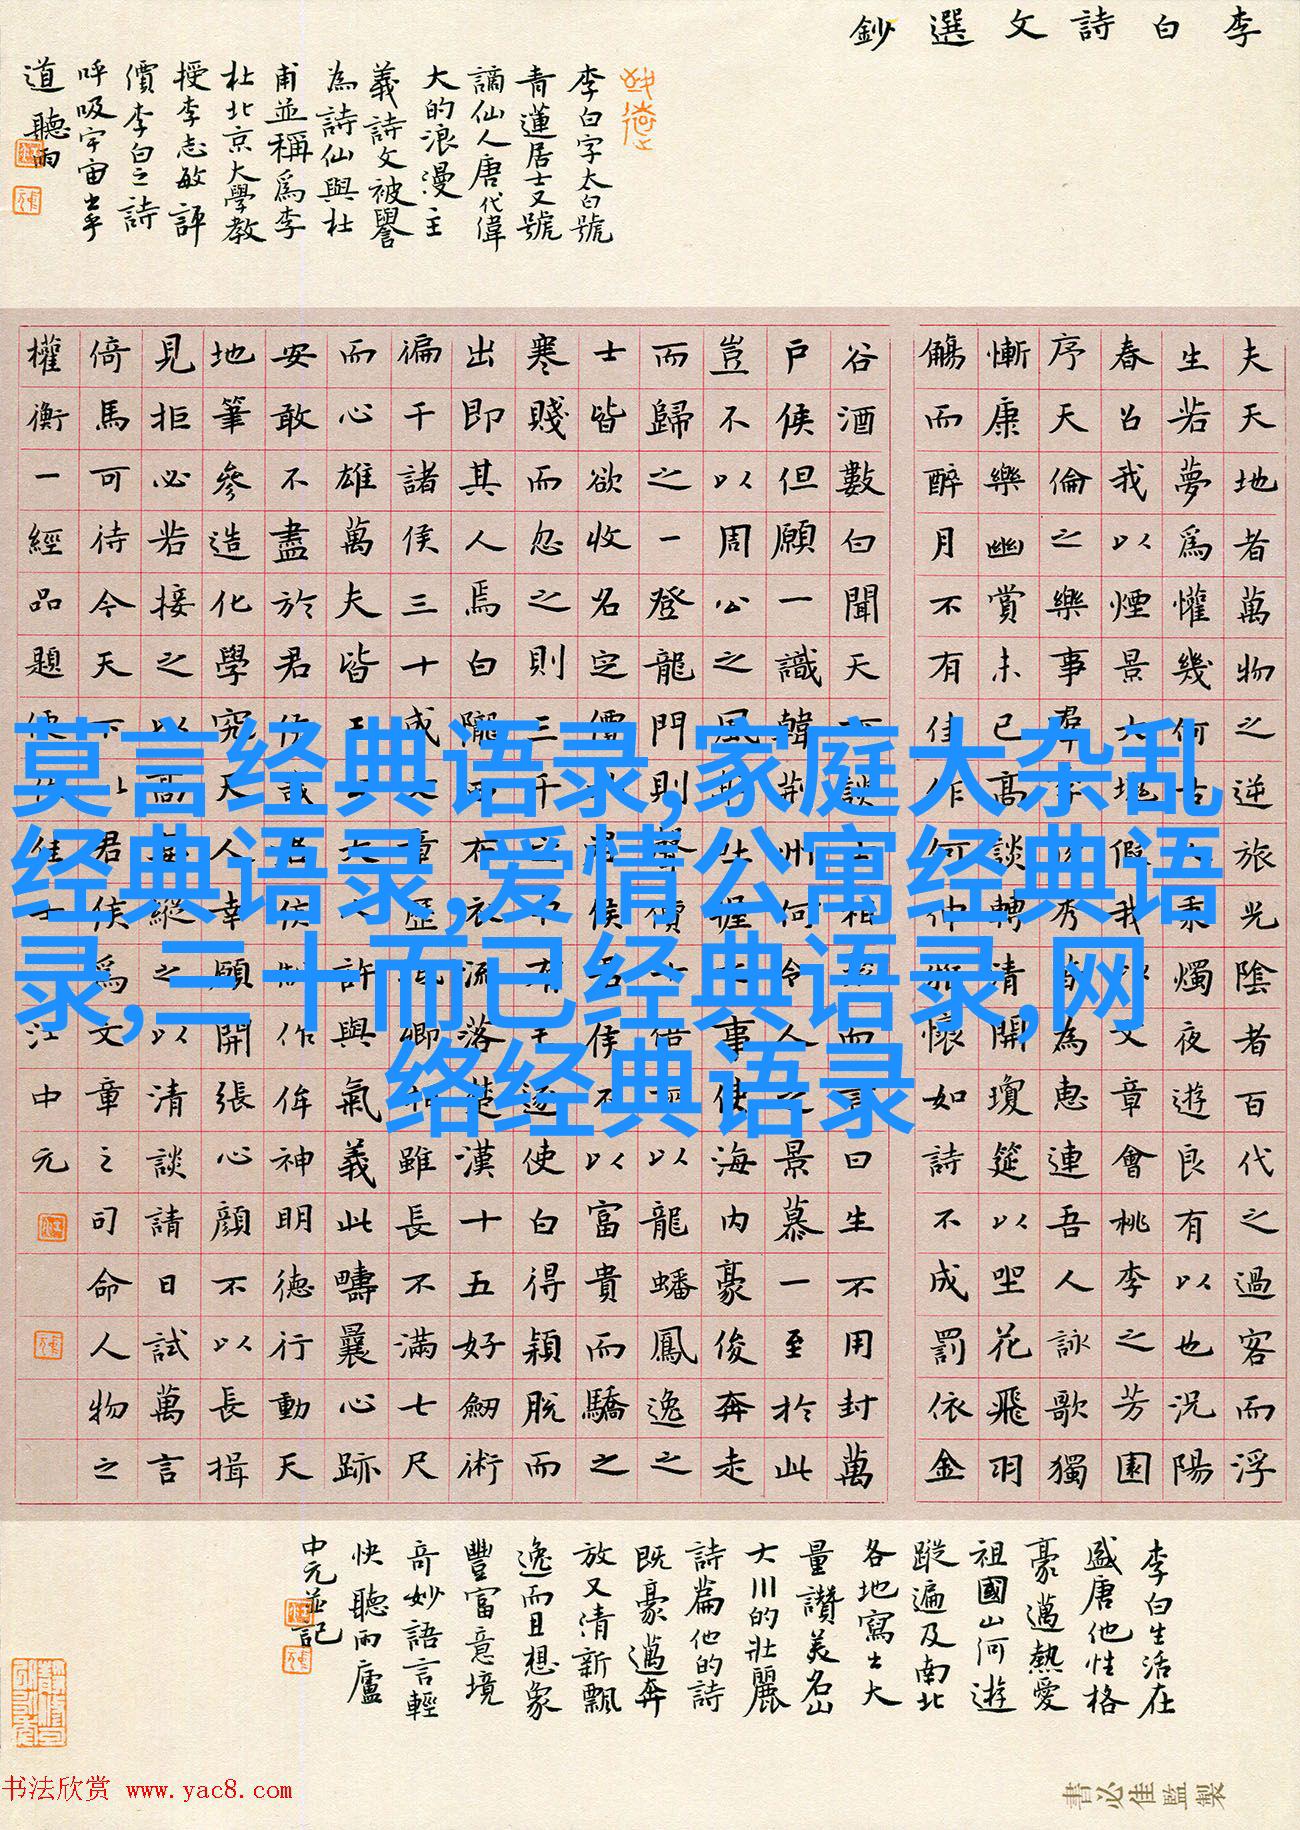 李白詩文選鈔
李白字太白號
青蓮居士又號
謫仙人唐代偉
大的浪漫主
義詩文被譽
為詩仙與杜
甫並稱爲李
杜北京大學教
授李志敏評
價李白之詩
呼吸宇宙出乎
道聽雨
夫天地者萬物之逆旅光陰者百代之過客而浮
生若夢爲懽幾何古人秉燭夜遊良有以也況陽
春召我以煙景大塊假我以文章會桃李之芳園
序天倫之樂事群季俊秀皆為惠連吾人詠歌獨
慚康樂幽賞未已高談轉清開瓊筵以坐花飛羽
觴而醉月不有佳作何伸雅懷如詩不成罰依金
谷酒數白聞天下談士相聚而言曰生不用封萬
戶侯但願一識韓荊州何令人之景慕一至於此
豈不以周公之風躬吐握之事使海內豪俊奔走
而歸之一登龍門則聲價十倍所以龍蟠鳳逸之
士皆欲收名定價於君侯君侯不以富貴而驕之
寒賤而忽之則三千之中有毛遂使白得穎脫而
出即其人焉白隴西布衣流落楚漢十五好劒術
徧干諸侯三十成文章歷抵卿相雖長不滿七尺
而心雄萬夫皆王公大人許與氣義此疇曩心跡
安敢不盡於君侯哉君侯制作侔神明德行動天
地筆參造化學究天人幸願開張心顏不以長揖
見拒必若接之以高宴縱之以清談請日試萬言
倚馬可待今天下以君侯爲文章之司命人物之
權衡一經品題便作佳士 汪中元
莫言经典语录,家庭大杂乱
经典语录,爱情公寓经典语
录,三十而已经典语录,网
络经典语录
李白生活在
盛唐他性格
豪邁熱愛
祖國山河遊
蹤遍及南北
各地寫出大
量讚美名山
大川的壯麗
詩篇他的詩
既豪邁奔
放又清新飄
逸而且想象
豐富意境
奇妙語言輕
快聽雨廬
中元並記
书法欣赏 www.yac8.com
書必佳監製